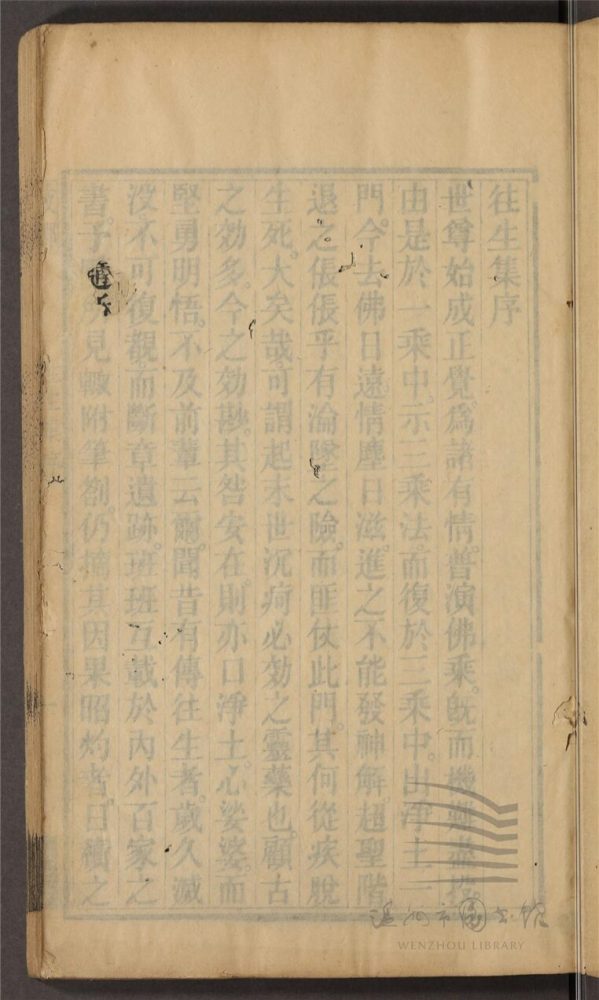 往生集序
世尊始成正覺爲諸有情普演佛乘。旣而機難盡投。
由是於一乘中。示三乘法。而復於三乘中。出淨土一
門。今去佛日遠。情塵日滋。進之不能發神解。超聖階
退之倀倀乎有淪墜之險。而匪仗此門。其何從疾脫
生死。大矣哉。可謂起末世沉痾必効之靈藥也。顧古
之効多。今之効尠。其咎安在。則亦口淨土。心娑婆。而
堅勇明悟。不及前輩云爾。聞昔有傳往生者。歲久滅
没。不可復觀。而斷章遺跡。班班互載於內外百家之
書。予 見輙附筆劄。仍摘其因果昭灼者。日積之
溫州市圖書館
WENZHOU LIBRARY